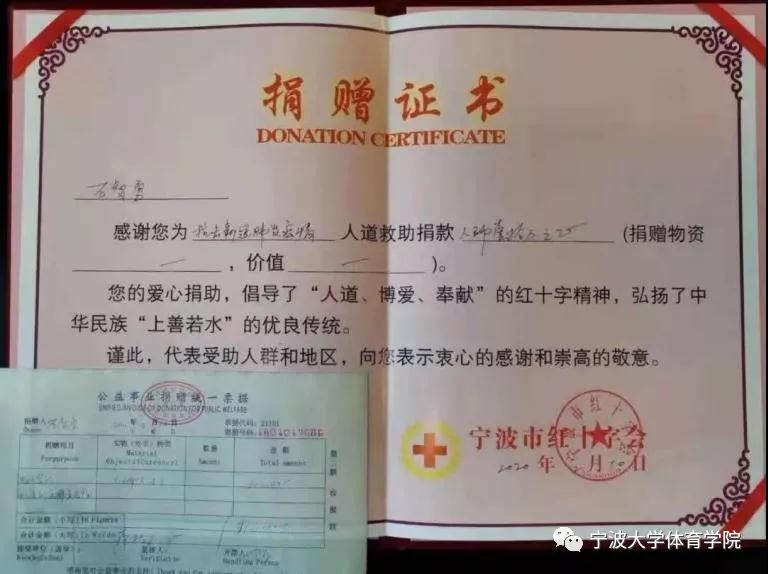 捐赠证书
DONATION CERTIFICATE
石智勇
感谢您为 抗击新冠肺炎疫情 人道救助捐款 人民币壹拾万元 (捐赠物资
一 ,价值 一 )。
您的爱心捐助,倡导了“人道、博爱、奉献”的红十字精神,弘扬了中
华民族“上善若水”的优良传统。
谨此,代表受助人群和地区,向您表示衷心的感谢和崇高的敬意。
宁波市红十字会
2020年 月10日
公益事业捐赠统一票据
UNIFIED INVOICE OF DONATION FOR PUBLIC WELFARE
捐赠人
Donor 年 月 日
票据代码: 21101
票据号码
捐赠项目 实物(外币)种类 数量 金额
For purpose Material Objects(Currency) Amount Total amount
第二联 收据联
合计金额(小写)In Figures
合计金额(大写)In Words
接受单位(盖章): 复核人: 开票人:
Received Unit Verified by Handling Person
宁波大学体育学院